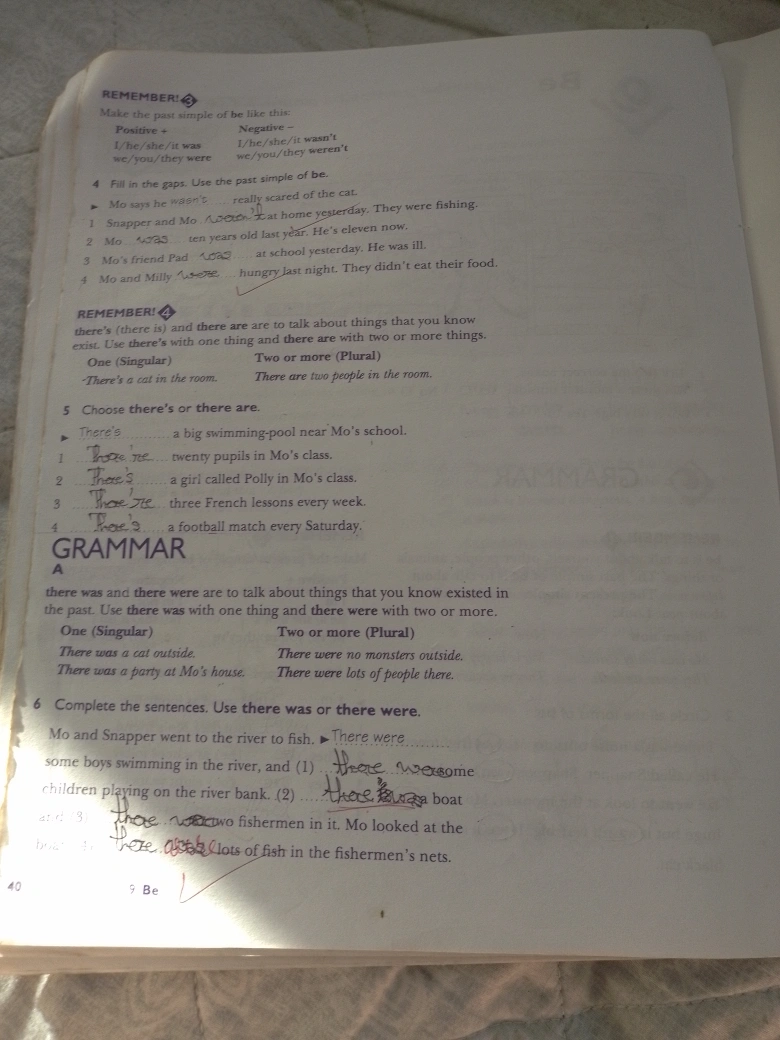 REMEMBER! 3
Make the past simple of be like this:
Positive + Negative –
I/he/she/it was I/he/she/it wasn't
we/you/they were we/you/they weren't
4 Fill in the gaps. Use the past simple of be.
► Mo says he wasn't really scared of the cat.
1 Snapper and Mo weren't at home yesterday. They were fishing.
2 Mo was ten years old last year. He's eleven now.
3 Mo's friend Pad was at school yesterday. He was ill.
4 Mo and Milly were hungry last night. They didn't eat their food.
REMEMBER! 4
there's (there is) and there are are to talk about things that you know
exist. Use there's with one thing and there are with two or more things.
One (Singular) Two or more (Plural)
There's a cat in the room. There are two people in the room.
5 Choose there's or there are.
► There's a big swimming-pool near Mo's school.
1 There're twenty pupils in Mo's class.
2 There's a girl called Polly in Mo's class.
3 There're three French lessons every week.
4 There's a football match every Saturday.
GRAMMAR
A
there was and there were are to talk about things that you know existed in
the past. Use there was with one thing and there were with two or more.
One (Singular) Two or more (Plural)
There was a cat outside. There were no monsters outside.
There was a party at Mo's house. There were lots of people there.
6 Complete the sentences. Use there was or there were.
Mo and Snapper went to the river to fish. ► There were
some boys swimming in the river, and (1) there were some
children playing on the river bank. (2) there was a boat
and (3) there two fishermen in it. Mo looked at the
there lots of fish in the fishermen's nets.
40 9 Be